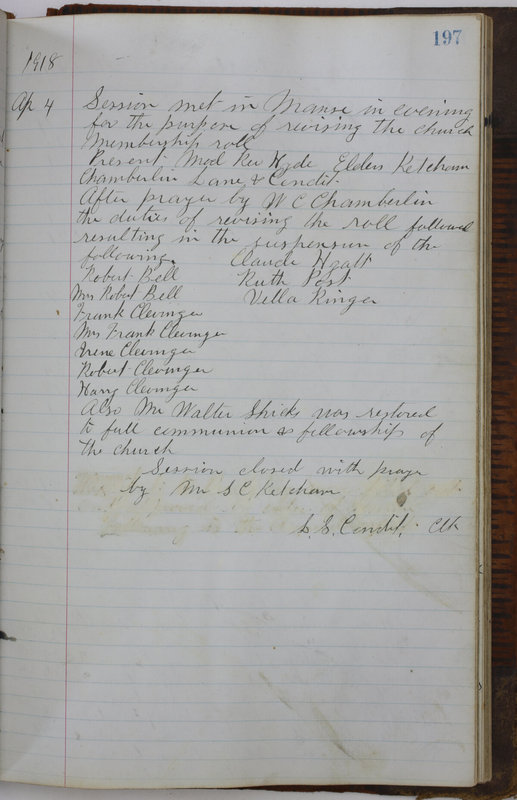 197
1918
Ap 4 Session met in Manse in evening
for the purpose of revising the church
membership roll
Present Mod Rev Hyde Elders Ketcham
Chamberlin Lane & Condit.
After prayer by W C Chamberlin
the duties of revising the roll followed
resulting in the suspension of the
following. Claude Hyatt
Robert Bell Ruth Post
Mrs Robert Bell Vella Ringer
Frank Clevinger
Mrs Frank Clevinger
Irene Clevinger
Robert Clevinger
Harry Clevinger
Also Mr Walter Shicks was restored
to full communion & fellowship of
the church
Session closed with prayer
by Mr S C Ketcham
S. S. Condit. Clk